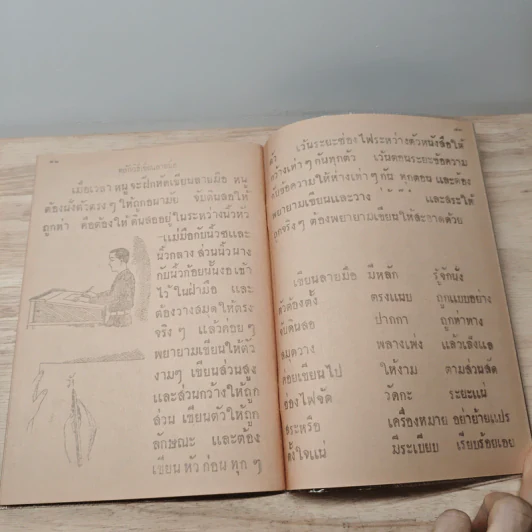 เมื่อเวลา หนูจะฝึกหัดเขียนลายมือ หนู
ต้องนั่งตัวตรง ๆ ให้ถูกอนามัย จับดินสอให้
ถูกท่า คือต้องให้ดินสออยู่ในระหว่างนิ้วหัว
แม่มือกับนิ้วชี้และ
นิ้วกลาง ส่วนนิ้วนาง
กับนิ้วก้อยนั้นงอเข้า
ไว้ในฝ่ามือ และ
ต้องวางสมุดให้ตรง
จริง ๆ แล้วค่อย ๆ
พยายามเขียนให้ตัว
งามๆ เขียนส่วนสูง
และส่วนกว้างให้ถูก
ส่วน เขียนตัวให้ถูก
ลักษณะ และต้อง
เขียน หัว ก่อน ทุก ๆ
ตัว เว้นระยะช่องไฟระหว่างตัวหนังสือให้
กว้างเท่า ๆ กันทุกตัว เว้นตอนระยะข้อความ
กับข้อความให้ห่างเท่า ๆ กัน ทุกตอน และต้อง
พยายามเขียนและวาง และสระให้
ถูกจริงๆ ต้องพยายามเขียนให้สะอาดด้วย
เขียนลายมือ มีหลัก รู้จักนั่ง
ตัวต้องตั้ง ตรงแน่บ ถูกแบบอย่าง
จับดินสอ ปากกา ถูกท่าทาง
สมุดวาง พลางเพ่ง แล้วเล็งแล
ค่อยเขียนไป ให้งาม ตามส่วนสัด
ช่องไฟจัด วัดกะ ระยะแน่
สระหรือ เครื่องหมาย อย่าย้ายแปร
ตั้งใจแน่ มีระเบียบ เรียบร้อยเอย